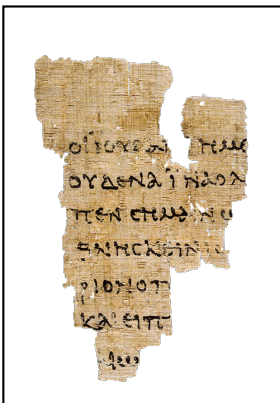 ΟΙΪΟΥΔΑΙ ΗΜΕ
ΟΥΔΕΝΑΪΝΑΟΛ
ΠΕΝϹΗΜΑΙΝΩ
ΘΝΗϹΚΕΙΝ
ΡΙΟΝΟΠ
ΚΑΙΕΙΠ